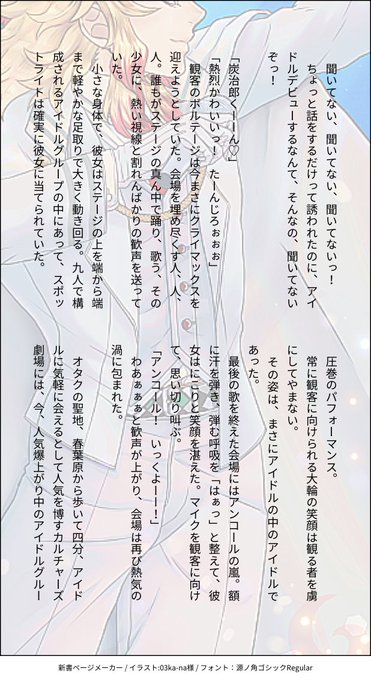 聞いてない、聞いてない、聞いてないっ！
ちょっと話をするだけって誘われたのに、アイ
ドルデビューするなんて、そんなの、聞いてない
ぞっ！
「炭治郎くーーん♡」
「熱烈かわいいっ！　たーんじろぉぉぉ」
観客のボルテージは今まさにクライマックスを
迎えようとしていた。会場を埋め尽くす人、人、
人。誰もがステージの真ん中で踊り、歌う、その
少女に、熱い視線と割れんばかりの歓声を送って
いた。
小さな身体で、彼女はステージの上を端から端
まで軽やかな足取りで大きく動き回る。九人で構
成されるアイドルグループの中にあって、スポッ
トライトは確実に彼女に当てられていた。
圧巻のパフォーマンス。
常に観客に向けられる大輪の笑顔は観る者を虜
にしてやまない。
その姿は、まさにアイドルの中のアイドルで
あった。
最後の歌を終えた会場にはアンコールの嵐。額
に汗を弾き、弾む呼吸を「はぁっ」と整えて、彼
女はにこりと笑顔を湛えた。マイクを観客に向け
て、思い切り叫ぶ。
「アンコール！　いっくよーー！」
わあぁぁぁと歓声が上がり、会場は再び熱気の
渦に包まれた。
オタクの聖地、春葉原から歩いて四分、アイド
ルに気軽に会えるとして人気を博すカルチャーズ
劇場には、今、人気爆上がり中のアイドルグルー
新書ページメーカー / イラスト:03ka-na様 / フォント：源ノ角ゴシックRegular